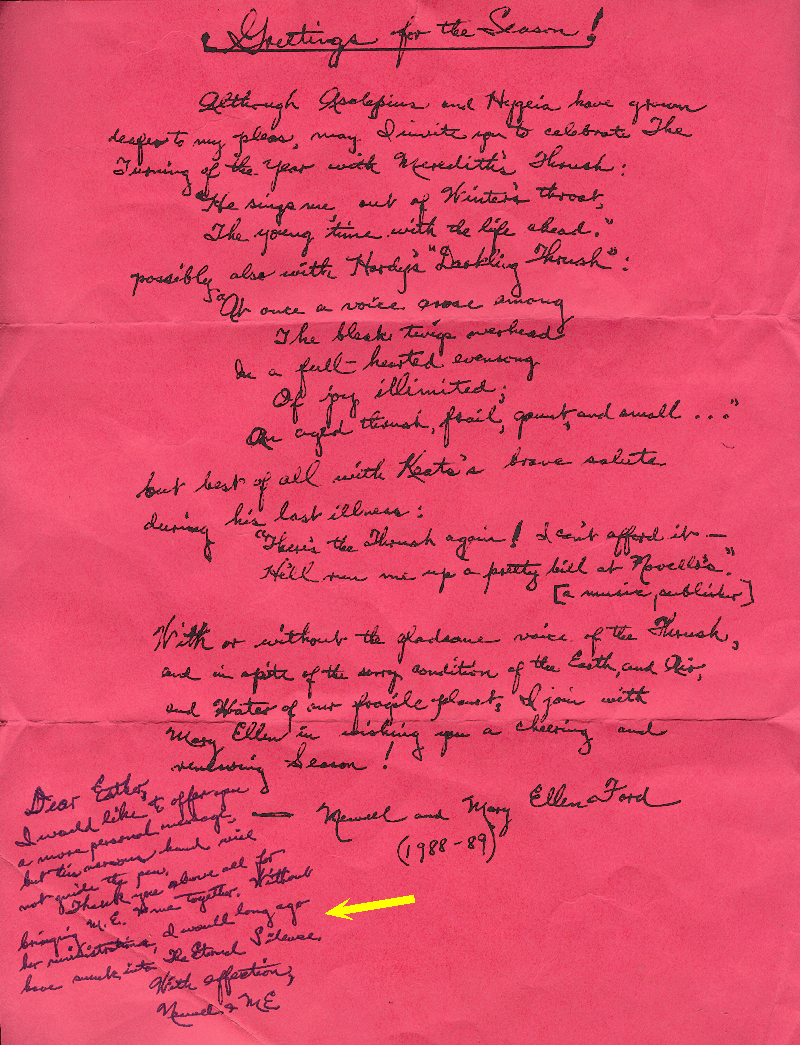 Greetings for the Season!
Although Asclepius and Hygeia have grown
deafer to my pleas, may I invite you to celebrate The
Turning of the Year with Meredith's Thrush:
"He sings me, out of Winter's throat,
The young time with the life ahead."
possibly also with Hardy's "Darkling Thrush":
"At once a voice arose among
The bleak twigs overhead
In a full-hearted evensong
Of joy illimited;
An aged thrush, frail, gaunt, and small ..."
but best of all with Keats's brave salute
during his last illness:
"There's the Thrush again! I can't afford it—
He'll run me up a pretty bill at Novello's."
[a music publisher]
With or without the gladsome voice of the Thrush,
and in spite of the sorry condition of the Earth, and Air,
and Water of our fragile planet, I join with
Mary Ellen in wishing you a cheering and
renewing Season!
— Newell and Mary Ellen Ford
(1988-89)
Dear Esther,
I would like to offer you
a more personal message,
but this nervous hand will
not guide the pen.
Thank you above all for
bringing M.E. & me together. Without
her ministrations, I would long ago
have sunk into The Eternal Silence.
With affection,
Newell & M E